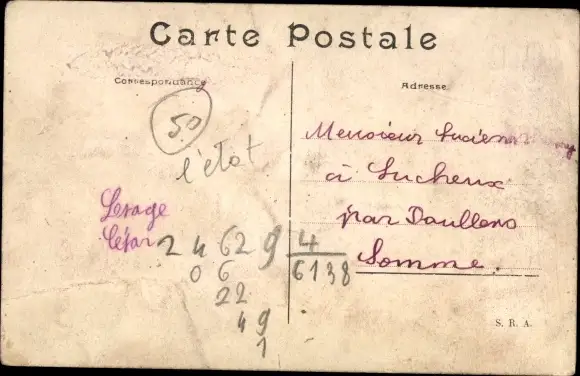 Carte Postale
Correspondance
Adresse
50
l'état
Lesage
César
Monsieur Lucien
à Lucheux
par Doullens
Somme.
24629 4
06 6138
22
49
1
S. R. A.